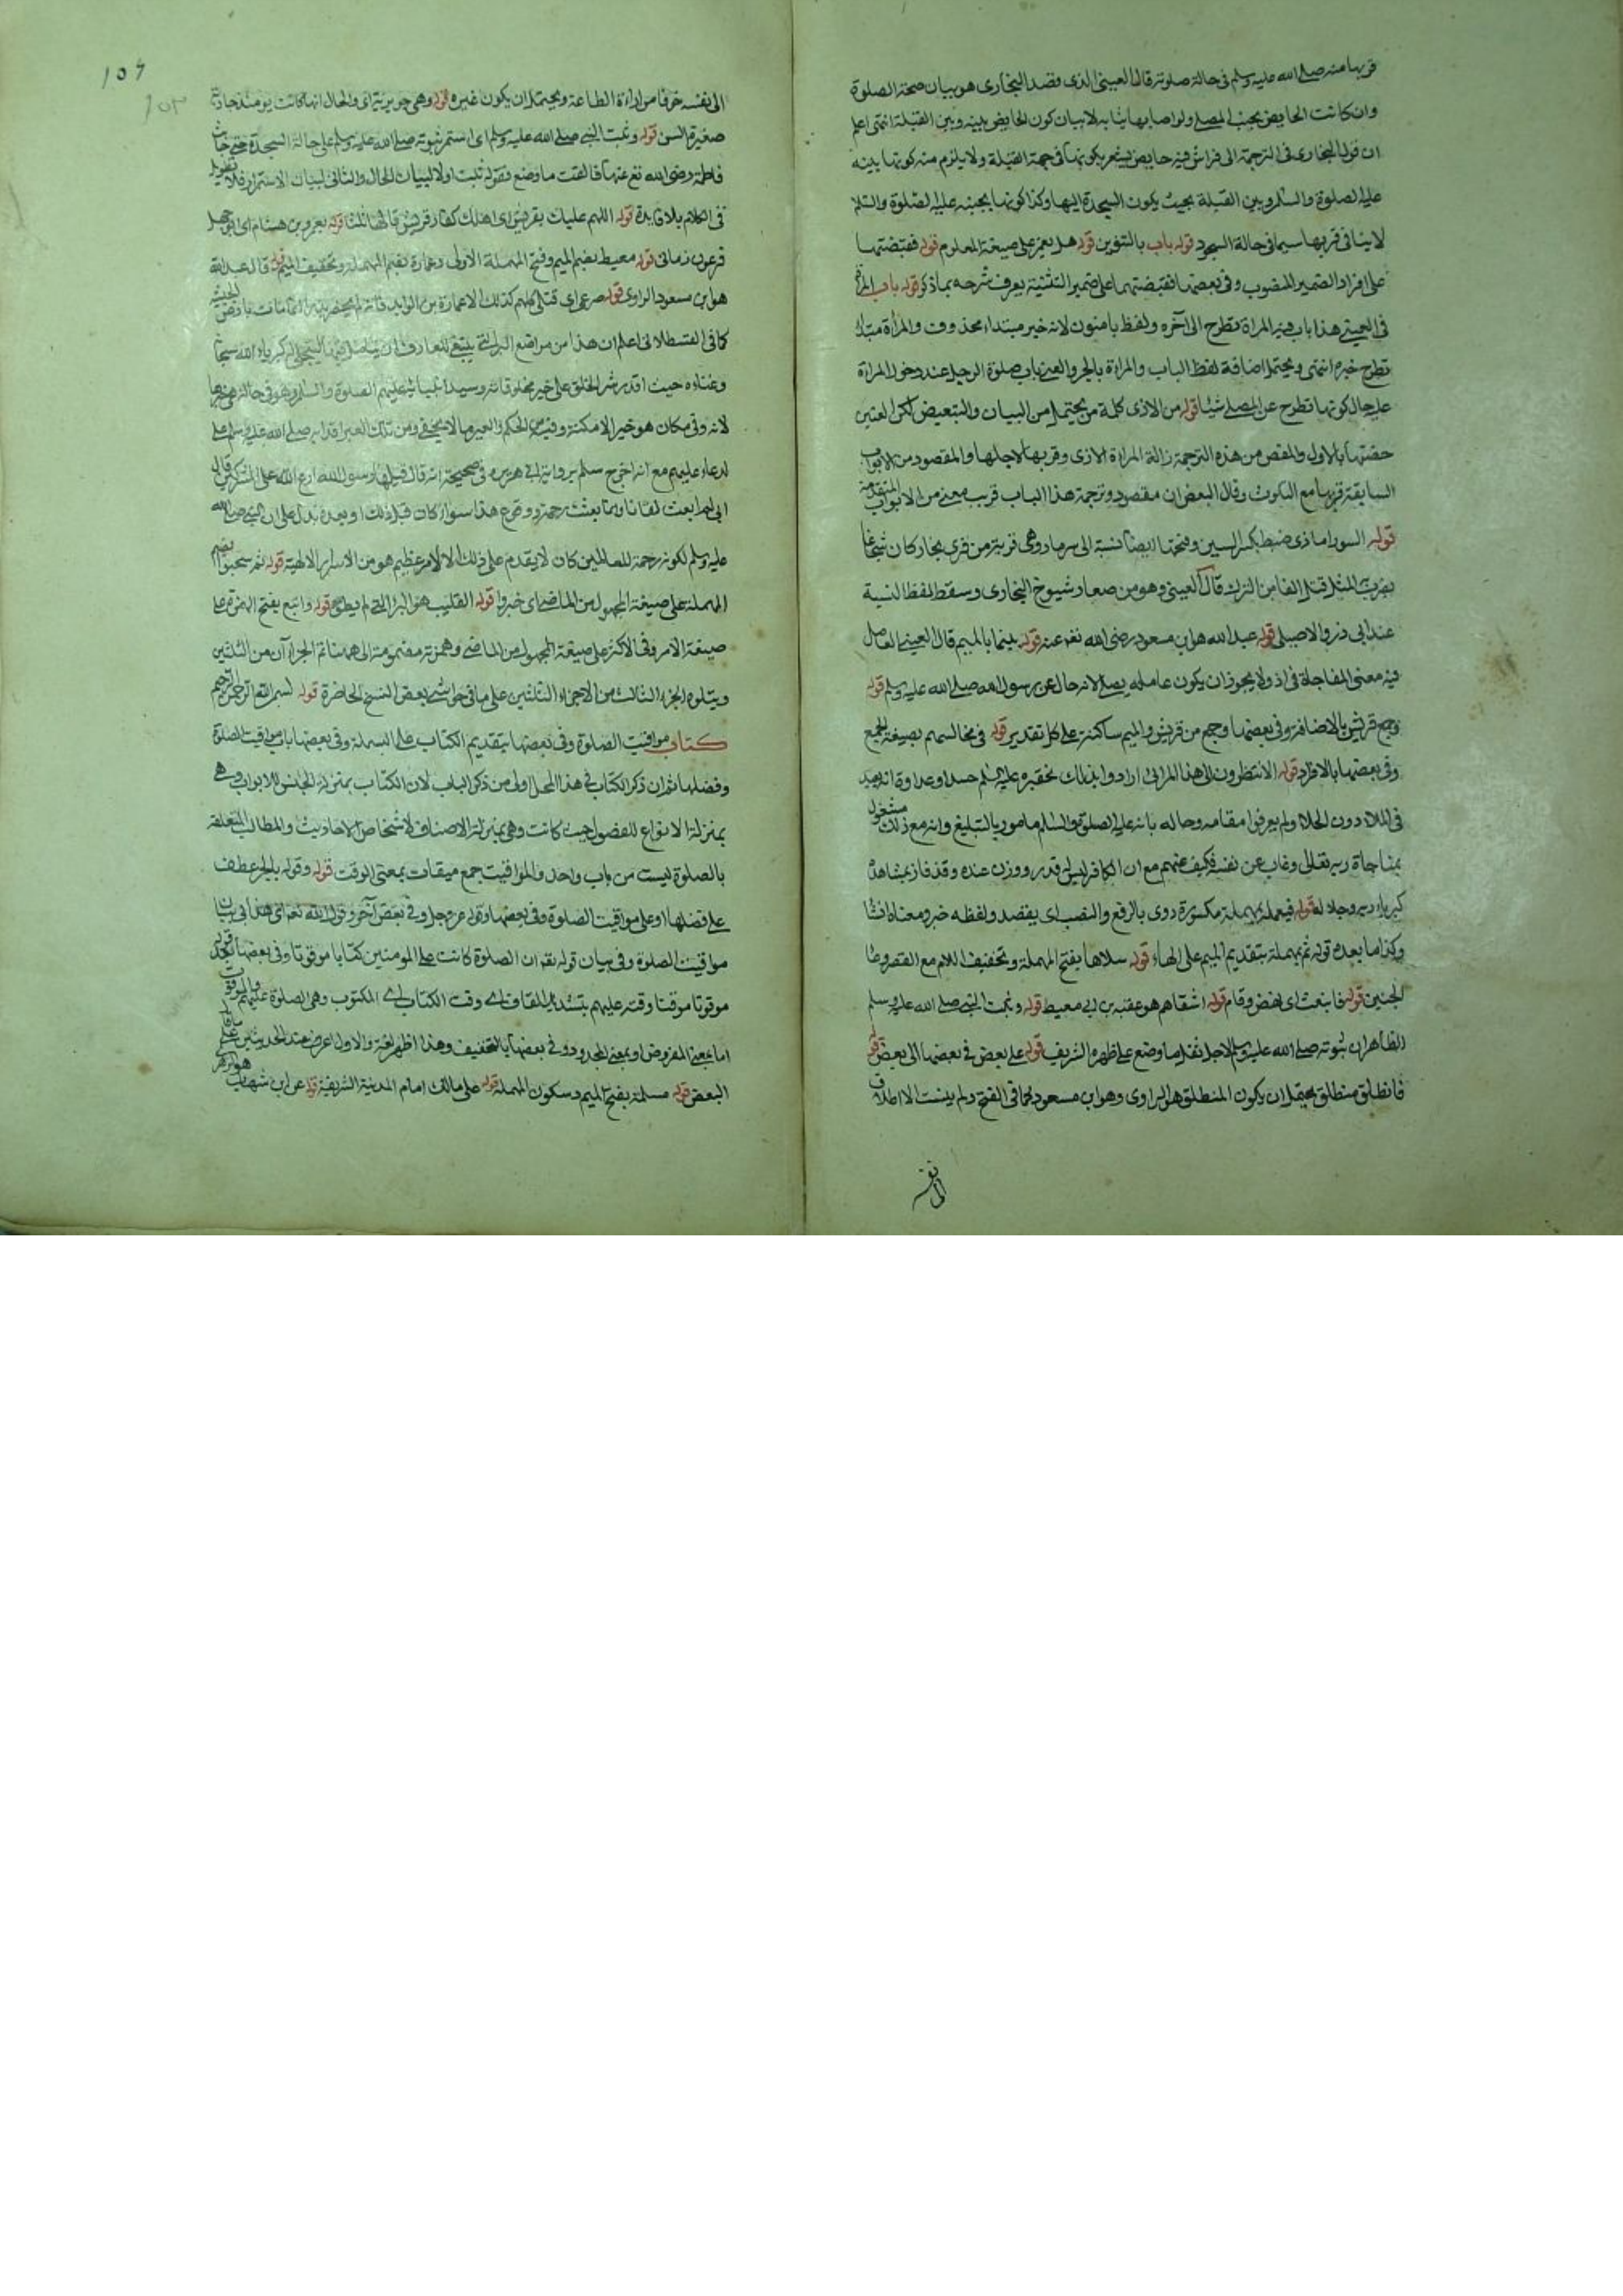 قربها منه صلى الله عليه وسلم في حالة صلوته قال العيني الذي قصد البخاري هو بيان صحة الصلوة
وان كانت الحايض بجنب المصلي ولو اصابها ثيابه لا بيان كون الحايض بينه وبين القبلة انتهى اعلم
ان قول البخاري في الترجمة الى فراش فيه حايض يشعر بكونها في جهة القبلة ولا يلزم منه كونها بينه
عليه الصلوة والسلام وبين القبلة بحيث يكون السجدة اليها وكذا كونها بجنبه عليه الصلوة والسلام
لا ينافي قربها سيما في حالة السجود قوله باب بالتنوين قوله هل يغمز على صيغة المعلوم قوله فقبضتهما
على افراد الضمير المنصوب وفي بعضها فقبضتهما على ضمير التثنية يعرف شرحه بما ذكر قوله باب المراة
في العيني هذا باب فيه المراة تطرح الى آخره ولفظ باب منون لانه خبر مبتداء محذوف والمراة مبتداء
تطرح خبره انتهى ويحتمل اضافة لفظ الباب والمراة بالجر والمعنى باب صلوة الرجل عند دخول المراة
على حال كونها تطرح عن المصلي شيئا قوله من الاذى كلمة من يحتمل من البيان والتبعيض لكن العيني
بالاول والمقص من هذه الترجمة ازالة المراة الاذى وقربها لاجلها والمقصود من الابواب
السابقة قربها مع السكوت وقال البعض ان مقصود وترجمة هذا الباب قريب معنى من الابواب المتقدمة
قوله السورامادي ضبط بكسر السين وفتحها ايضا نسبة الى سرمار وهي قرية من قرى بخارا كان شجاعا
يضرب المثل قتل الفا من الترك قال العيني وهو من صغار شيوخ البخاري وسقط لفظ النسبة
عند ابي ذر والاصيلي قوله عبد الله هو ابن مسعود رضي الله تعم عنه قوله بينما بالميم قال العيني العامل
فيه معنى المفاجاة في اذ ولا يجوز ان يكون عامله يصلي لانه حال عن رسول الله صلى الله عليه وسلم قوله
وجمع قريش بالاضافة وفي بعضها وجمع من قريش والميم ساكنة على كل تقدير قوله في مجالسهم بصيغة الجمع
وفي بعضها بالافراد قوله الا تنظرون الى هذا المرائي ارادوا بذلك تحقيره عليه السلم حسدا وعداوة انه يعبد
في الملاء دون الخلاء ولم يعرفوا مقامه وحاله بانه عليه الصلوة والسلام مامور بالتبليغ وانه مع ذلك مشغول
بمناجاة ربه تعالى وغاب عن نفسه فكيف عنهم مع ان الكافر ليس له قدر ووزن عنده وقد فاز بمشاهدة
كبرياء ربه وجلاله قوله فيعمد بمهملة مكسورة روي بالرفع والنصب اي يقصد ولفظه خبر ومعناه انشاء
وكذا ما بعده قوله ثم يمهله بتقديم الميم على الهاء قوله سلاها بفتح المهملة وتخفيف اللام مع القصر وعاء
الجنين قوله فانبعث اي نهض وقام قوله اشقاهم هو عقبة بن ابي معيط قوله وثبت النبي صلى الله عليه وسلم
الظاهر ان ثبوته صلى الله عليه وسلم لاجل ثقل ما وضع على ظهره الشريف قوله على بعض في بعضها الى بعض قوله
فانطلق منطلق يحتمل ان يكون المنطلق هو الراوي وهو ابن مسعود كما في الفتح ولم ينسب الاطلاق
الى نفسه
١٥٤
١٥٣
الى نفسه خوفا من اراءة الطاعة ويحتمل ان يكون غيره قوله وهي جويرية اي والحال انها كانت يومئذ جارية
صغيرة السن قوله وثبت النبي صلى الله عليه وسلم اي استمر ثبوته صلى الله عليه وسلم على حالة السجدة حتى جاءت
فاطمة رضي الله تع عنها فالقت ما وضع فقوله ثبت اولا لبيان الحال والثاني لبيان الاستمرار فلا تطويل
في الكلام بلا فايدة قوله اللهم عليك بقريش اي اهلك كفار قريش قالها ثلثا قوله بعمرو بن هشام اي ابي جهل
فرعون زمانه قوله معيط بضم الميم وفتح المهملة الاولى وعمارة بضم المهملة وتخفيف الميم قوله قال عبد الله
هو ابن مسعود الراوي قوله صرعى اي قتلى كلهم كذلك الا عمارة بن الوليد فانه لم يحضر بدرا انما مات بارض الحبشة
كما في القسطلاني اعلم ان هذا من مواضع التي ينبغي للعارف ان كبرياء الله سبحانه
وغناءه حيث اقدر شر الخلق على خير مخلوقاته وسيد انبيائه عليهم الصلوة والسلام وهو في حالة
لانه وفي مكان هو خير الامكنة وفيه من الحكم والعبر ما لا يخفى ومن تلك العبر اقدامه صلى الله عليه وسلم على
الدعاء عليهم مع انه اخرج مسلم برواية ابي هريرة في صحيحه انه قال قيل يا رسول الله ادع الله على المشركين قال
اني لم ابعث لعانا وانما بعثت رحمة ووقوع هذا سواء كان قبل ذلك او بعده يدل على ان النبي صلى الله
عليه وسلم لكونه رحمة للعالمين كان لا يقدم على ذلك الا لامر عظيم هو من الاسرار الالهية قوله ثم سحبوا بضم
المهملة على صيغة المجهول من الماضي اي جروا قوله القليب هو البئر التي لم يطو قوله واتبع بفتح الهمزة على
صيغة الامر وفي الاكثر على صيغة المجهول من الماضي وهمزته مضمومة الى ههنا تم الجزء آن من الثلثين
ويتلوه الجزء الثالث من الاجزاء الثلثين على ما في حواشي بعض النسخ الحاضرة قوله بسم الله الرحمن الرحيم
كتاب مواقيت الصلوة وفي بعضها بتقديم الكتاب على البسملة وفي بعضها باب مواقيت الصلوة
وفضلها ثم ان ذكر الكتاب في هذا المحل اولى من ذكر الباب لان الكتاب بمنزلة الجنس للابواب وهي
بمنزلة الانواع للفصول حيث كانت وهي بمنزلة الاصناف لاشخاص الاحاديث والمطالب المتعلقة
بالصلوة ليست من باب واحد والمواقيت جمع ميقات بمعنى الوقت قوله وقوله بالجر عطف
على فضلها او على مواقيت الصلوة وفي بعضها وقوله عز وجل وفي بعض آخر وقول الله تعم اي هذا في بيان
مواقيت الصلوة وفي بيان قوله تعم ان الصلوة كانت على المومنين كتابا موقوتا وفي بعضها بعد قوله
موقوتا موقتا وقته عليهم بتشديد القاف اي وقت الكتاب اي المكتوب وهي الصلوة عليهم والموقوت
اما بمعنى المفروض او بمعنى المحدود وفي بعضها بالتخفيف وهذا اظهر لغة والاول اعرف عند المحدثين على ما قاله
البعض قوله مسلمة بفتح الميم وسكون المهملة قوله على مالك امام المدينة الشريفة قوله عن ابن شهاب هو الزهري